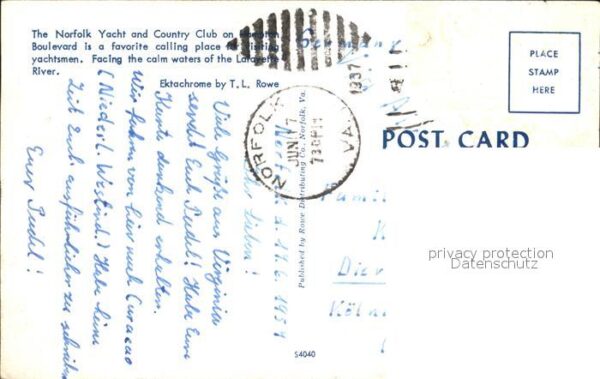 The Norfolk Yacht and Country Club on Hampton
Boulevard is a favorite calling place for visiting
yachtsmen. Facing the calm waters of the Lafayette
River.
Ektachrome by T. L. Rowe
NORFOLK
JUN 17
7 30 PM
VA.
1957
Germany
PLACE
STAMP
HERE
POST CARD
Published by Rowe Distributing Co., Norfolk, Va.
Norfolk, d. 17.6.1957
Ihr Lieben!
Viele Grüße aus Virginia
sendet Euch Seidel! Habe Eure
Karte dankend erhalten.
Wir fahren von hier nach Curacao
(Niederl. Westind.) Habe keine
Zeit Euch ausführlicher zu schreiben
Euer Seidel!
Famili
Köln
privacy protection
Datenschutz
S4040